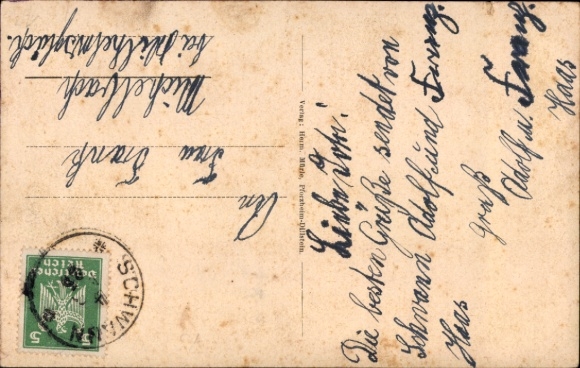 Liebe Toni!
Die besten Grüße sendet von
Schwann Adolf und Franz.
Haas
Gruß
Adolf u. Franz
Haas
Verlag: Herm. Mügle, Pforzheim-Dillstein.
An
Frau Frank
Michelbach
bei Wilhelmsglück.
SCHWANN
Deutsches Reich
5 5